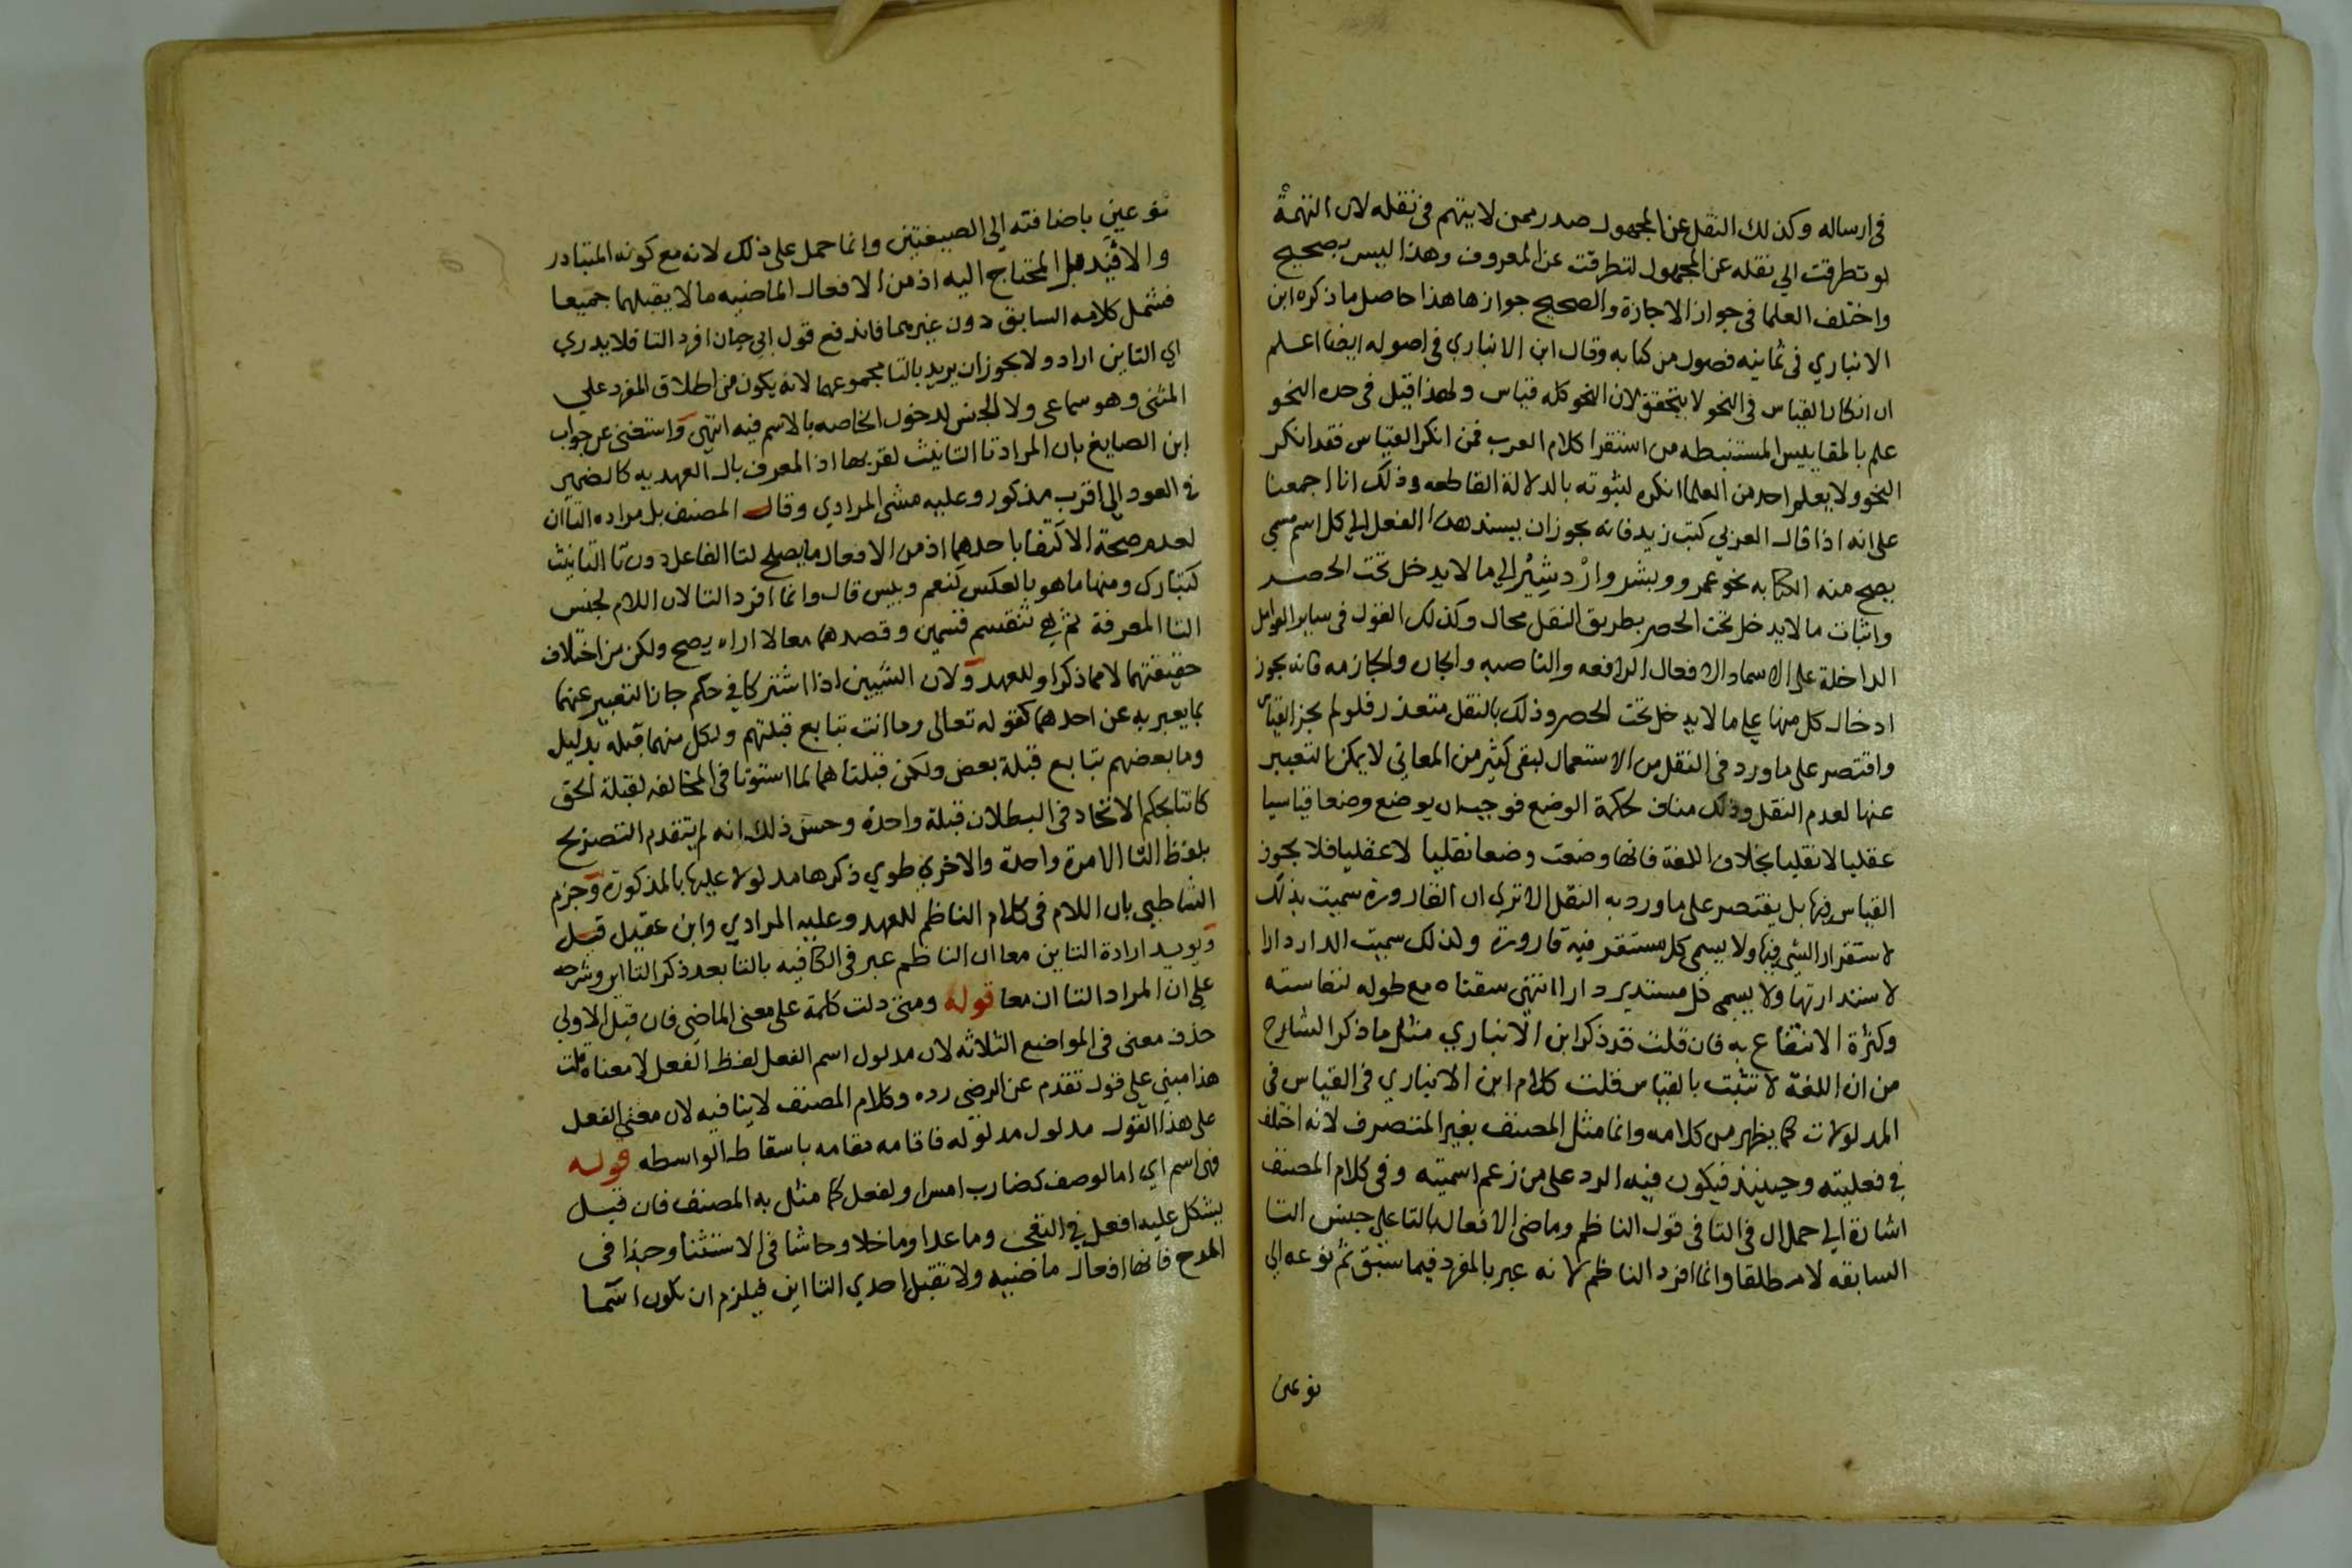 في ارساله وكذلك النقل عن المجهول صدر ممن لا يتهم في نقله لان التهمة
لو تطرقت الي نقله عن المجهول لتطرقت عن المعروف وهذا ليس بصحيح
واختلف العلما في جواز الاجازة والصحيح جوازها هذا حاصل ما ذكره ابن
الانباري في ثمانيه فصول من كتابه وقال ابن الانباري في اصوله ايضا اعلم
ان انكار القياس في النحو لا يتحقق لان النحو كله قياس ولهذا قيل في حده النحو
علم بالمقاييس المستنبطه من استقرا كلام العرب فمن انكر القياس فقد انكر
النحو ولا يعلم احد من العلما انكره لثبوته بالدلالة القاطعه وذلك انا اجمعنا
على انه اذا قال العربي كتب زيد فانه يجوز ان يسند هذا الفعل الي كل اسم مسمي
يصح منه الكتابه نحو عمرو وبشر واردشير الي ما لا يدخل تحت الحصر
واثبات ما لا يدخل تحت الحصر بطريق النقل محال وكذلك القول في ساير العوامل
الداخلة على الاسما والافعال الرافعه والناصبه والجار والجازمه فانه يجوز
ادخال كل منها علي ما لا يدخل تحت الحصر وذلك بالنقل متعذر فلو لم يجز القياس
واقتصر على ما ورد في النقل من الاستعمال لبقي كثير من المعاني لا يمكن التعبير
عنها لعدم النقل وذلك مناف لحكمة الوضع فوجب ان يوضع وضعا قياسيا
عقليا لا نقليا بخلاف اللغة فانها وضعت وضعا نقليا لا عقليا فلا يجوز
القياس فيها بل يقتصر على ما ورد به النقل الا تري ان القارورة سميت بذلك
لاستقرار الشي فيها ولا يسمى كل مستقر فيه قارورة وكذلك سميت الدار دارا
لاستدارتها ولا يسمى كل مستدير دارا انتهى سقناه مع طوله لنفاسته
وكثرة الانتفاع به فان قلت قد ذكر ابن الانباري مثل ما ذكر الشارح
من ان اللغة لا تثبت بالقياس قلت كلام ابن الانباري في القياس في
المدلولات كما يظهر من كلامه وانما مثل المصنف بغير المتصرف لانه اختلف
في فعليته وحينئذ فيكون فيه الرد على من زعم اسميته وفي كلام المصنف
اشارة الي حمل ال في التا في قول الناظم وماضي الافعال بالتا علي جنس التا
السابقه لا مطلقا وانما افرد الناظم لانه عبر بالمفرد فيما سبق ثم نوعه الي
نوعين
نوعين باضافته الي الصيغتين وانما حمل على ذلك لانه مع كونه المتبادر
والاقيد هو المحتاج اليه اذ من الافعال الماضيه ما لا يقبلهما جميعا
فشمل كلامه السابق دون غيرهما فاندفع قول ابي حيان افرد التا فلا يدري
اي التاين اراد ولا يجوز ان يريد بالتا مجموعهما لانه يكون من اطلاق المفرد علي
المثنى وهو سماعي ولا الجنس لدخول الخاصه بالاسم فيه انتهى واستغنى عن جواب
ابن الصايغ بان المراد تا التانيث لقربها اذ المعرف بال العهديه كالضمير
في العود الي اقرب مذكور وعليه مشى المرادي وقال المصنف بل مراده التاآن
لعدم صحة الاكتفا باحدهما اذ من الافعال ما يصلح لتا الفاعل دون تا التانيث
كتبارك ومنها ما هو بالعكس كنعم وبيس قال وانما افرد التا لان اللام لجنس
التا المعرفة ثم هي تنقسم قسمين وقصدهما معا لا اراه يصح ولكن من اختلاف
حقيقتهما لا مما ذكر او للعهد ولان الشيين اذا اشتركا في حكم جاز التعبير عنهما
بما يعبر به عن احدهما كقوله تعالى وما انت بتابع قبلتهم ولكل منهما قبلة بدليل
وما بعضهم بتابع قبلة بعض ولكن قبلتاهما لما استوتا في المخالفه لقبلة الحق
كانتا بحكم الاتحاد في البطلان قبلة واحدة وحسن ذلك انه لم يتقدم التصريح
بلفظ التا الا مرة واحدة والاخري طوي ذكرها مدلولا عليها بالمذكورة وجزم
الشاطبي بان اللام في كلام الناظم للعهد وعليه المرادي وابن عقيل قيل
ويويد ارادة التاين معا ان الناظم عبر في الكافيه بالتا بعد ذكر التااين وشرحه
علي ان المراد التاان معا قوله ومتى دلت كلمة على معنى الماضي فان قيل الاولي
حذف معنى في المواضع الثلاثه لان مدلول اسم الفعل لفظ الفعل لا معناه قلت
هذا مبني علي قول تقدم عن الرضي رده وكلام المصنف لا ينافيه لان معنى الفعل
على هذا القول مدلول مدلوله فاقامه مقامه باسقاط الواسطه قوله
فهي اسم اي اما لوصف كضارب امس او لفعل كما مثل به المصنف فان قيل
يشكل عليه افعل في التعجب وما عدا وما خلا وحاشا في الاستثنا وحبذا في
المدح فانها افعال ماضيه ولا تقبل احدي التااين فيلزم ان تكون اسما